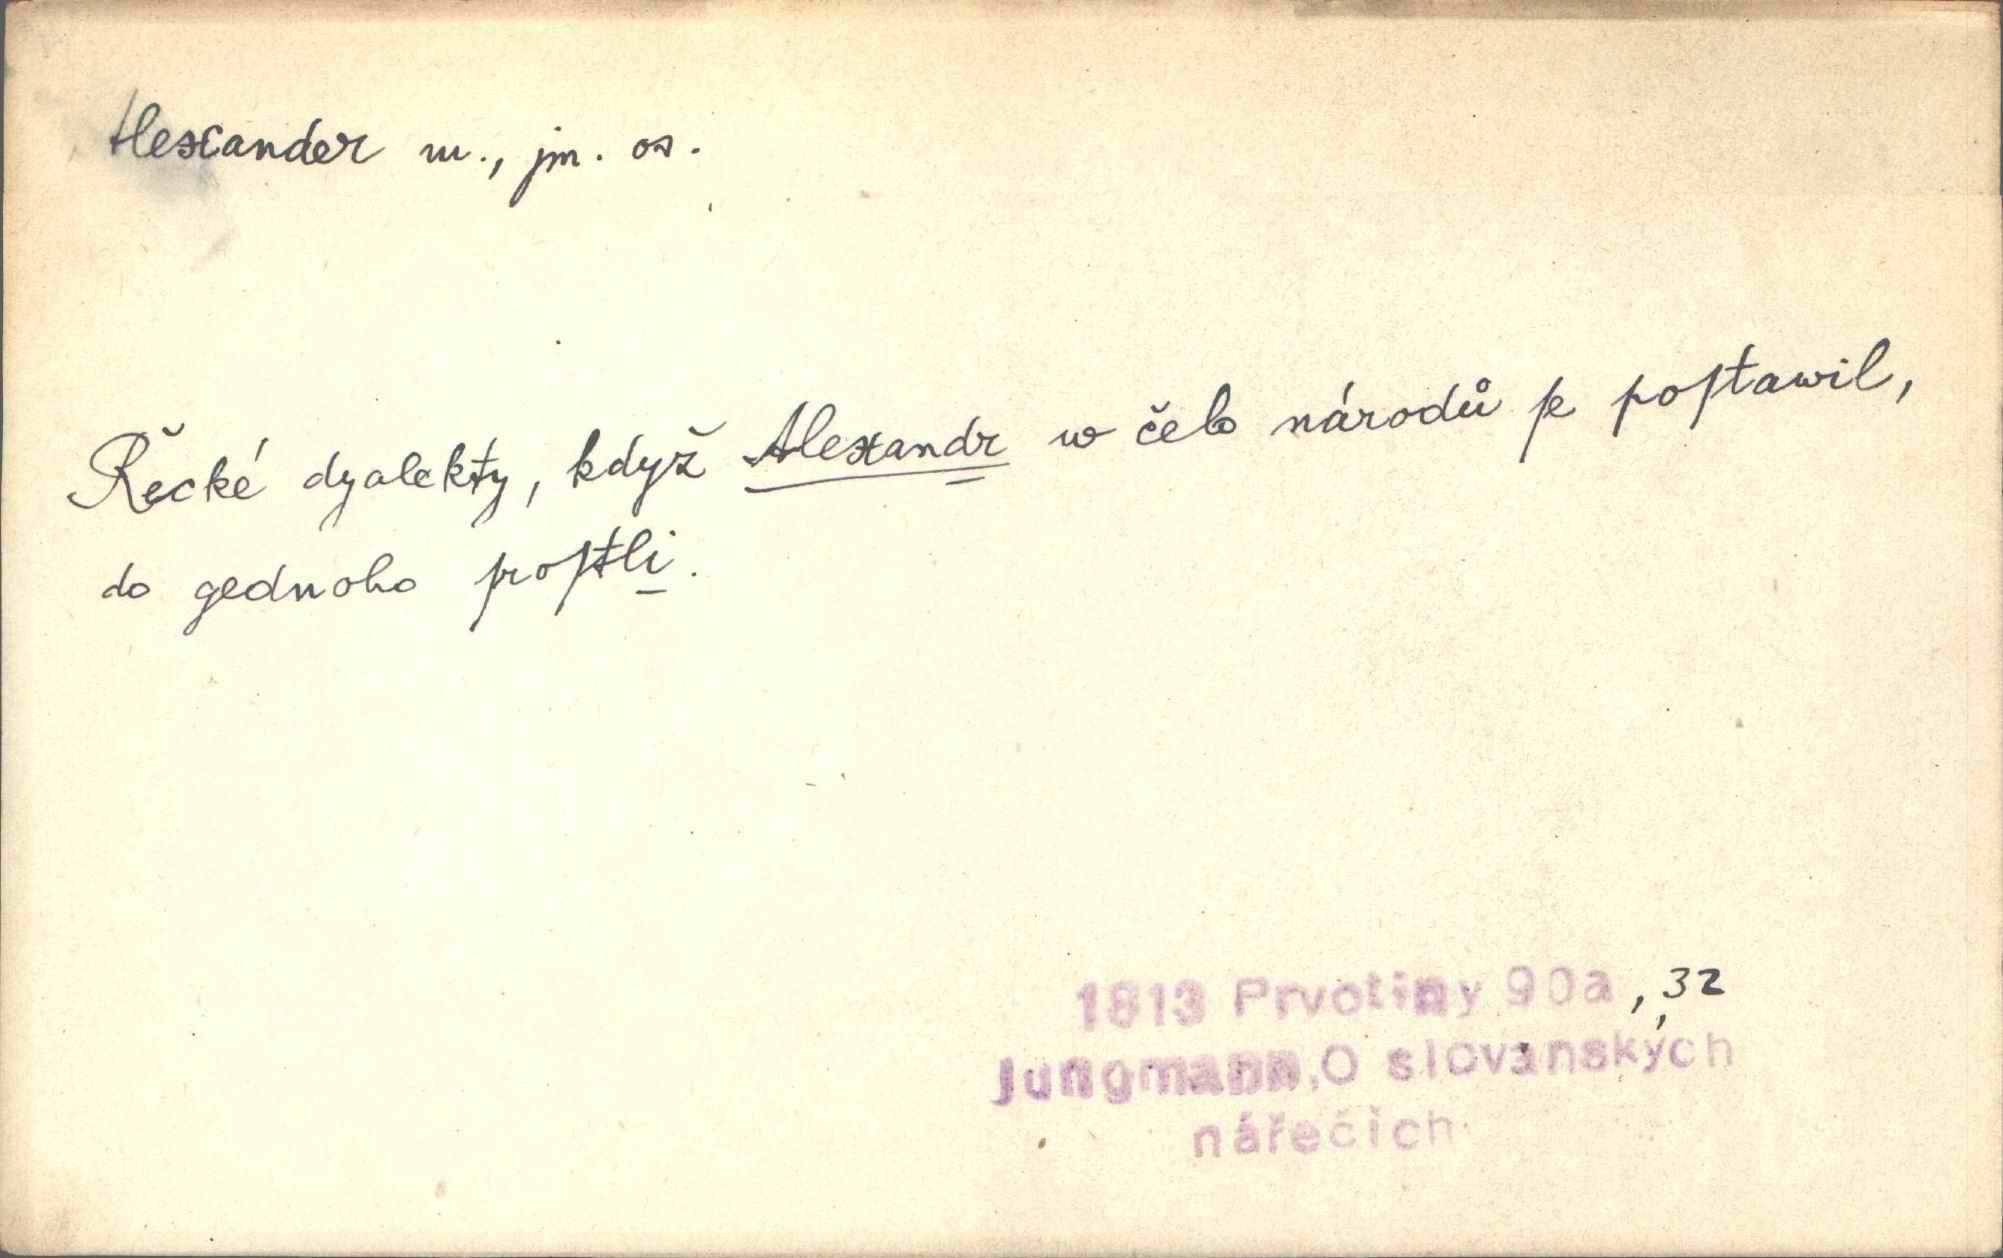 Alexander m., jm. os.
Řecké dyalekty, když Alexandr w čelo národů ſe poſtawil,
do gednoho ſroſtli.
1813 Prvotiny 90a, 32
Jungmann, O slovanských
nářečích